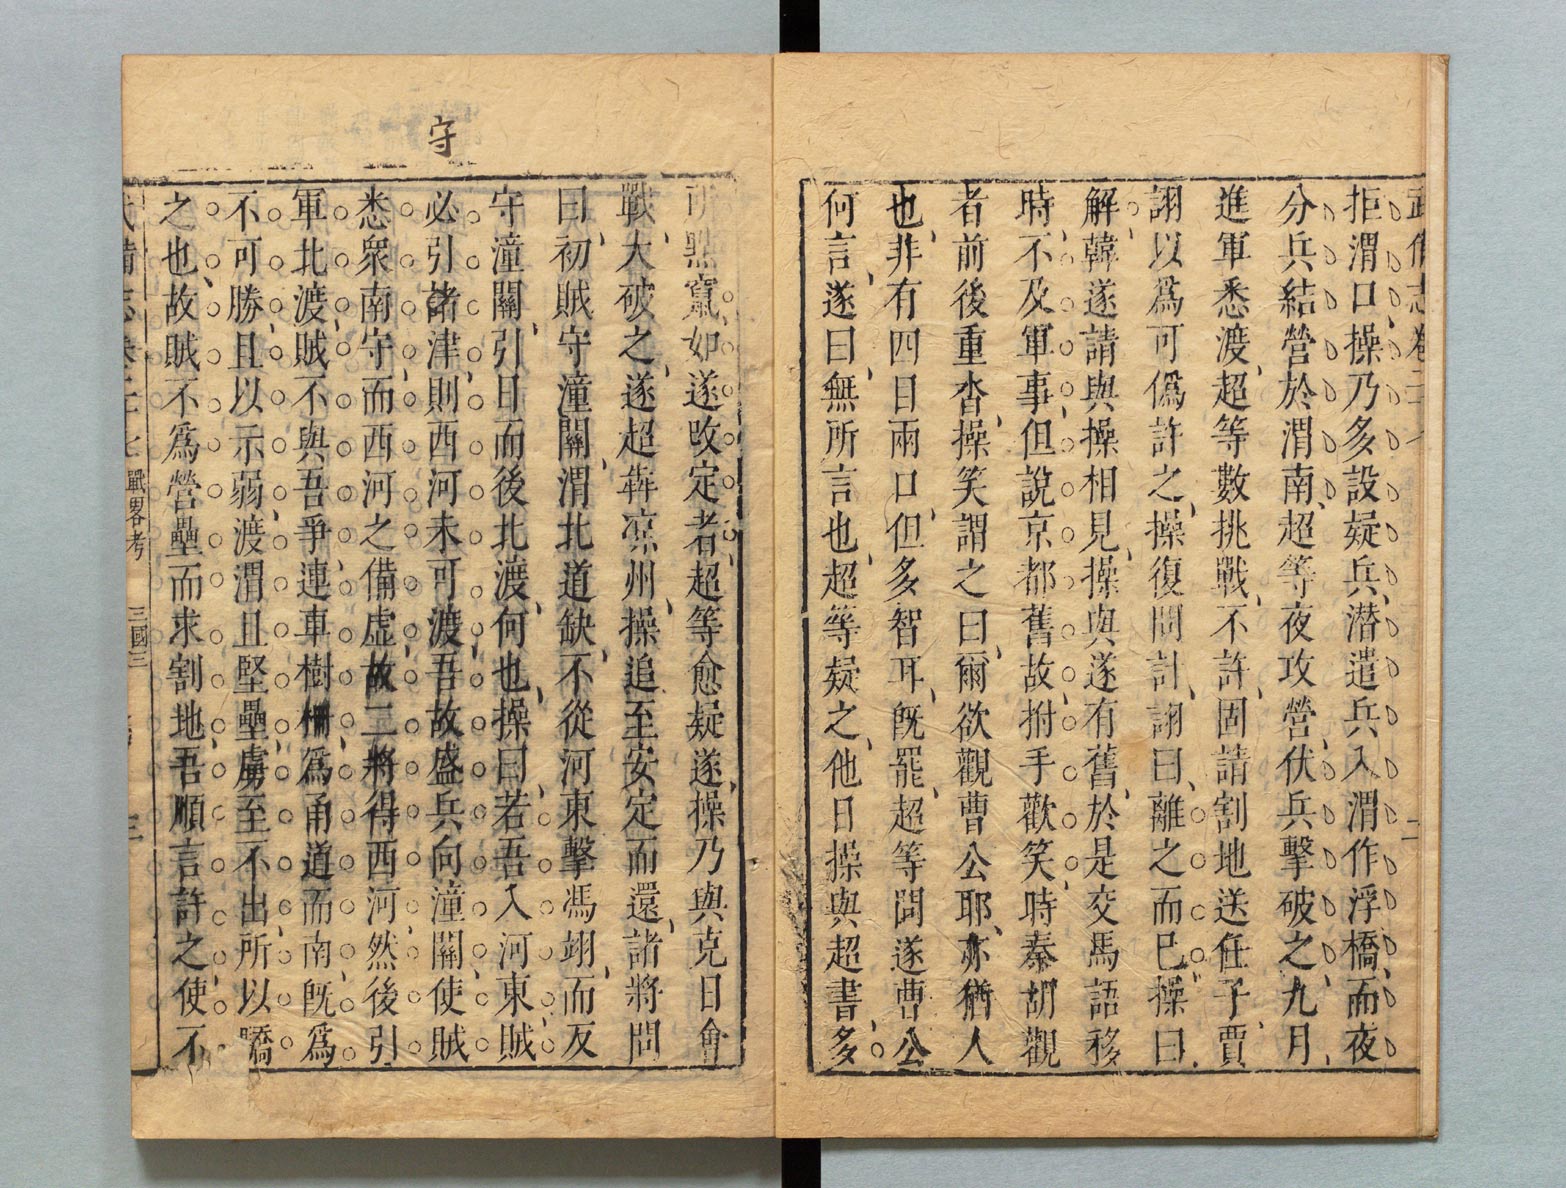 武備志卷二
二
拒渭口操乃多設疑兵潜遣兵入渭作浮橋而夜
分兵結營於渭南超等夜攻營伏兵擊破之九月
進軍悉渡超等數挑戰不許固請割地送任子賈
詡以爲可僞許之操復問計詡曰離之而已操曰
解韓遂請與操相見操與遂有舊於是交馬語移
時不及軍事但說京都舊故拊手歡笑時秦胡觀
者前後重沓操笑謂之曰爾欲觀曹公耶亦猶人
也非有四目兩口但多智耳旣罷超等問遂曹公
何言遂曰無所言也超等疑之他日操與超書多
守
所㸃竄如遂改定者超等愈疑遂操乃與克日會
戰大破之遂超犇凉州操追至安定而還諸將問
曰初賊守潼關渭北道缺不從河東擊馮翊而反
守潼關引日而後北渡何也操曰若吾入河東賊
必引諸津則西河未可渡吾故盛兵向潼關使賊
悉衆南守而西河之備虛故二將得西河然後引
軍北渡賊不與吾爭連車樹柵爲甬道而南旣爲
不可勝且以示弱渡渭且堅壘虜至不出所以驕
之也故賊不爲營壘而求割地吾順言許之使不
武備志卷二十七 戰畧考 三國三
三